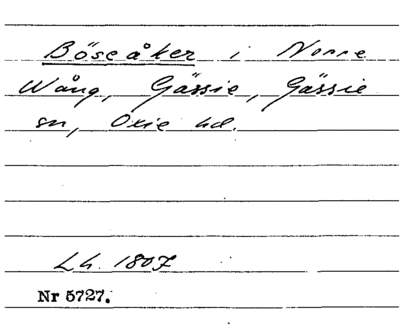 Böseåker i Norre
Wång, Gässie, Gässie
sn, Oxie hd.
Lh. 1807
Nr 5727.